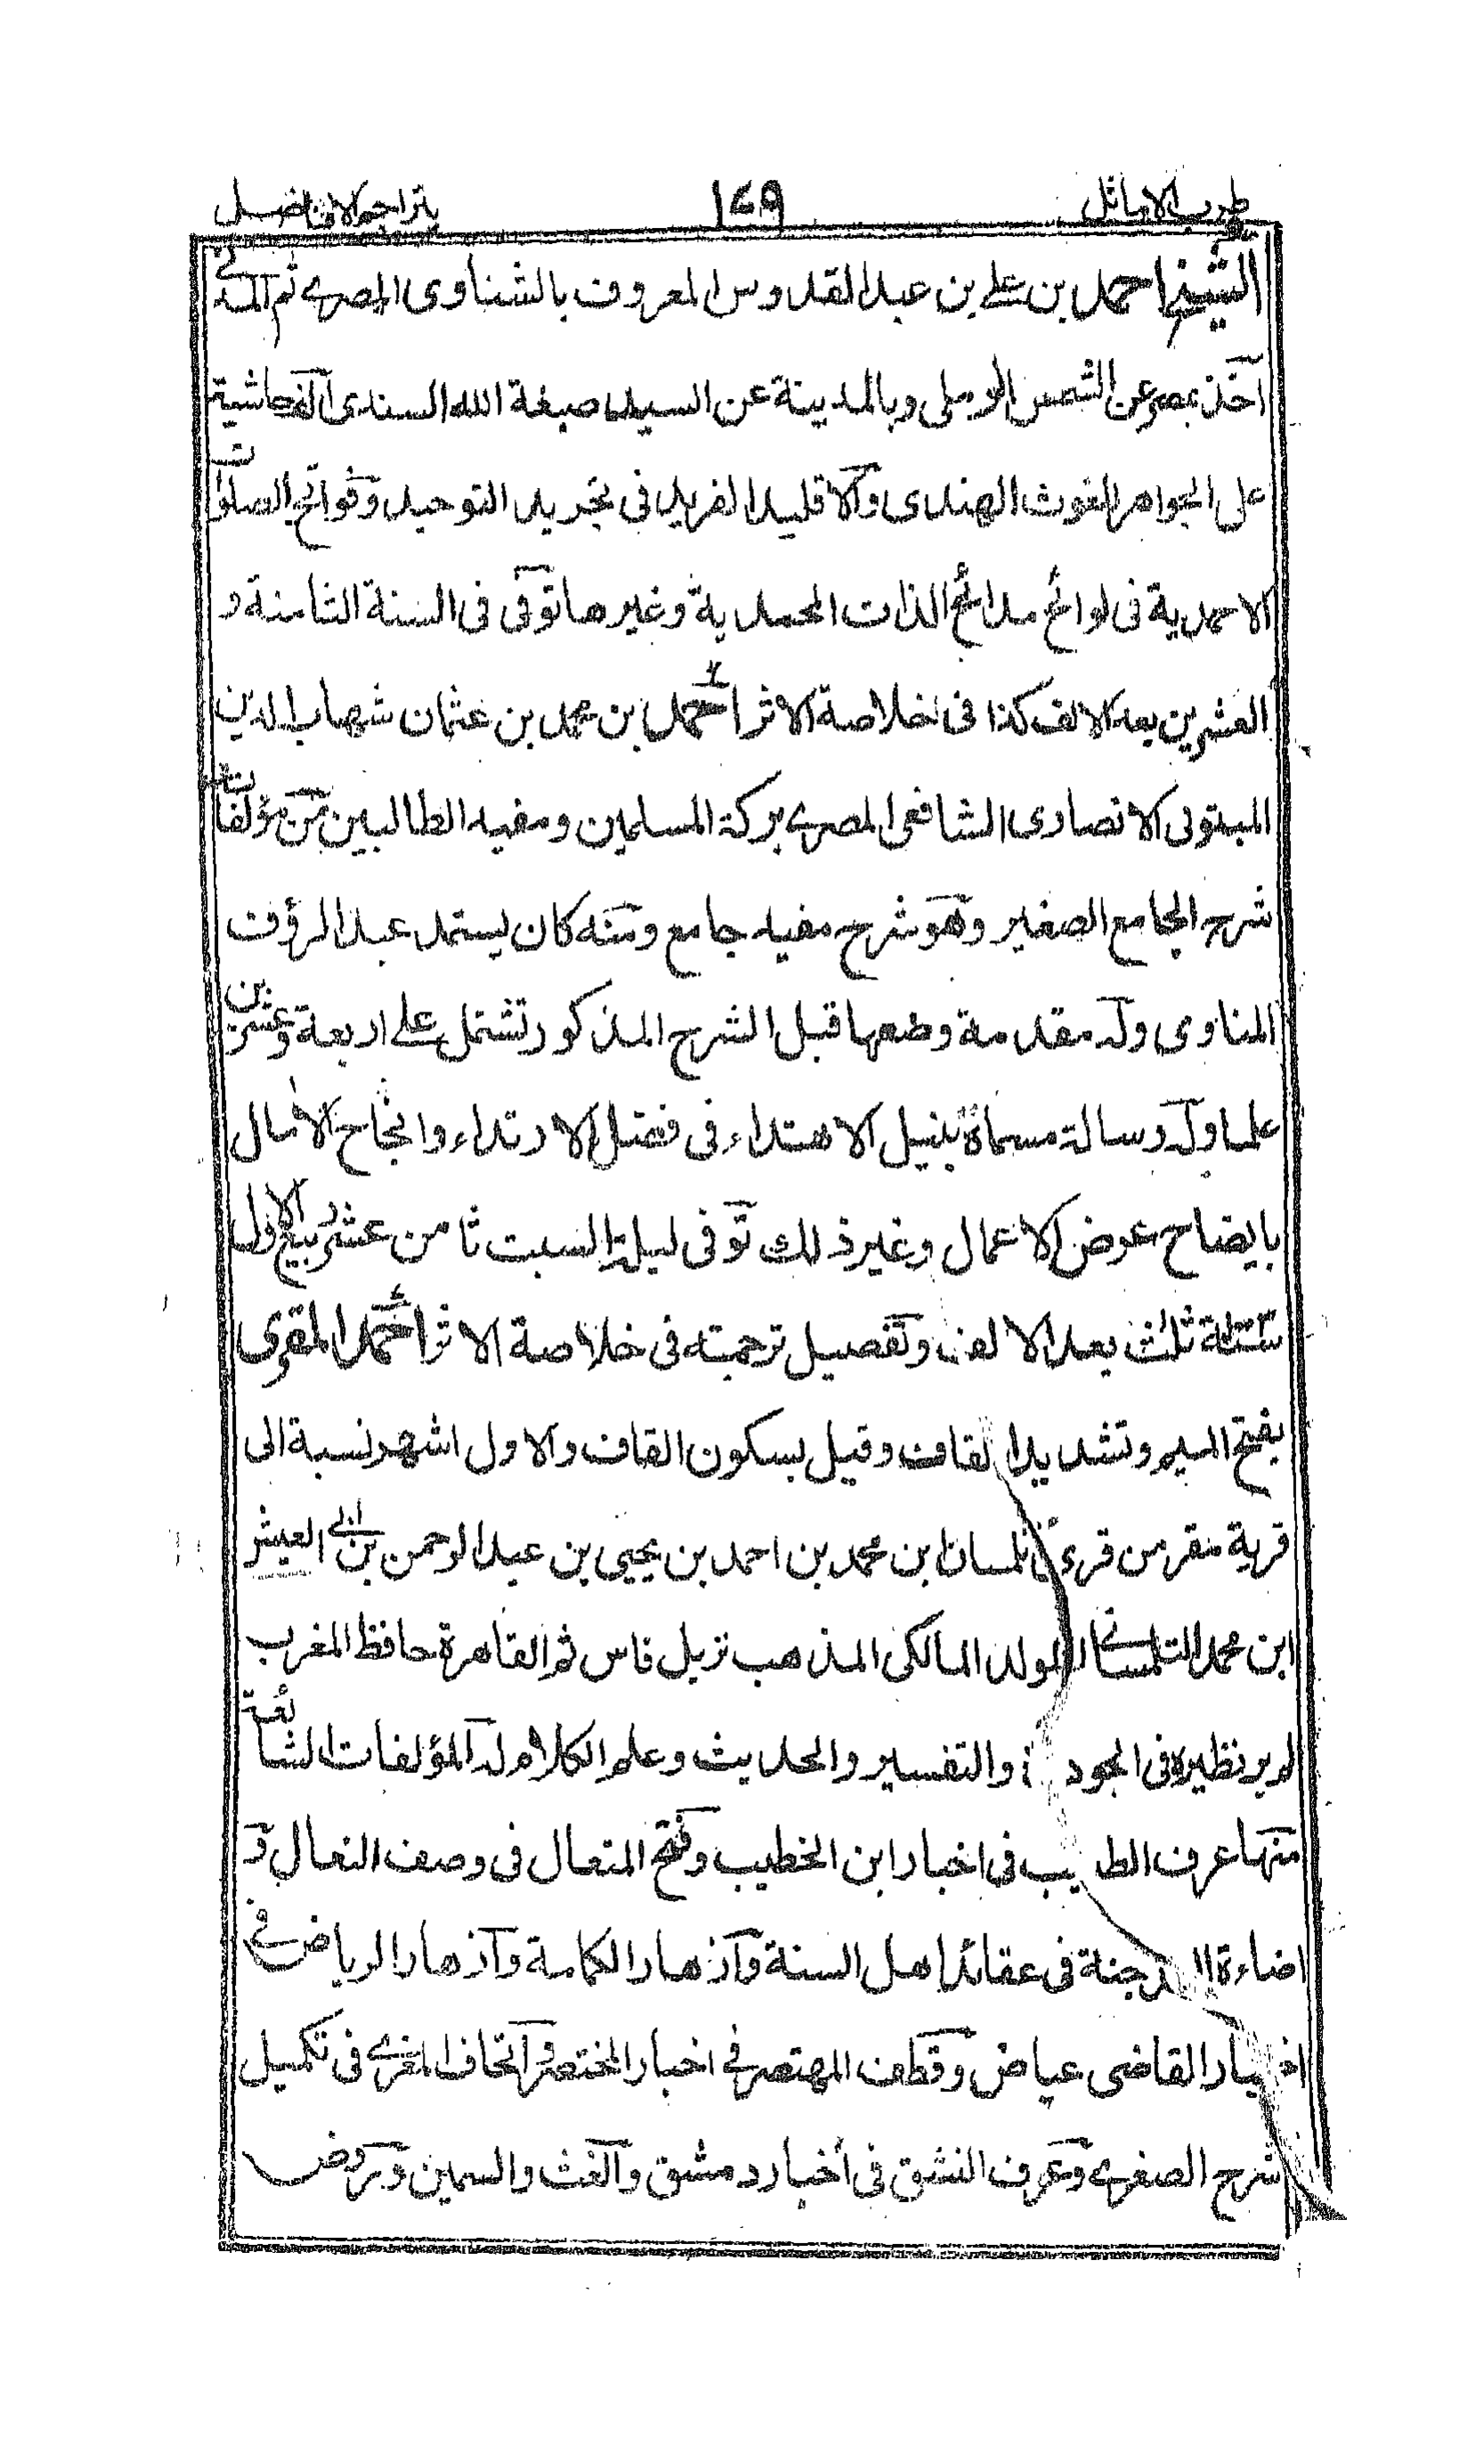 طرب الاماثل ١٤٩ بتراجم الافاضل
الشيخ احمد بن علي بن عبد القدوس المعروف بالشناوى المصرے ثم المدنے
آخذ بمصر عن الشمس الرملى وبالمدينة عن السيد صبغة الله السندى آلف حاشية
على الجواهر الغوث الهندى وآلاقليد الفريد فى تجريد التوحيد وفواتح الصلوات
الاحمدية فى لوائح مدائح الذات المحمدية وغيرها توفى فى السنة الثامنة و
العشرين بعد الالف كذا فى خلاصة الاثر احمد بن محمد بن عثمان شهاب الدين
المبتولى الانصارى الشافعى المصرے بركة المسلمين ومفيد الطالبين من مؤلفاته
شرح الجامع الصغير وهو شرح مفيد جامع ومنه كان يستمد عبد الرؤف
المناوى وله مقدمة وضعها قبل الشرح المذكور تشتمل على اربعة وعشرين
علما وله رسالة مسماة بنيل الاهتداء فى فضل الارتداء وانجاح الامال
بايضاح عرض الاعمال وغير ذلك توفى ليلة السبت ثامن عشر ربيع الاول
سنة ثلث بعد الالف وتفصيل ترجمته فى خلاصة الاثر احمد المقرى
بفتح الميم وتشديد القاف وقيل بسكون القاف والاول اشهر نسبة الى
قرية مقر من قرے تلمسان بن محمد بن احمد بن يحيى بن عبد الرحمن بن ابي العيش
ابن محمد التلمسانے المولد المالكى المذهب نزيل فاس ثم القاهرة حافظ المغرب
لم ير نظيره فى الجود والتفسير والحديث وعلم الكلام له المؤلفات الشائعة
منها عرف الطيب فى اخبار ابن الخطيب وفتح المتعال فى وصف النعال و
اضاءة الدجنة فى عقائد اهل السنة وآزهار الكمامة وآزهار الرياض فے
اخبار القاضى عياض وقطف المهتصر فے اخبار المختصر وآتحاف المغرے فى تكميل
شرح الصغرے وعرف النشق فى أخبار دمشق وآلغث والسمين وروض